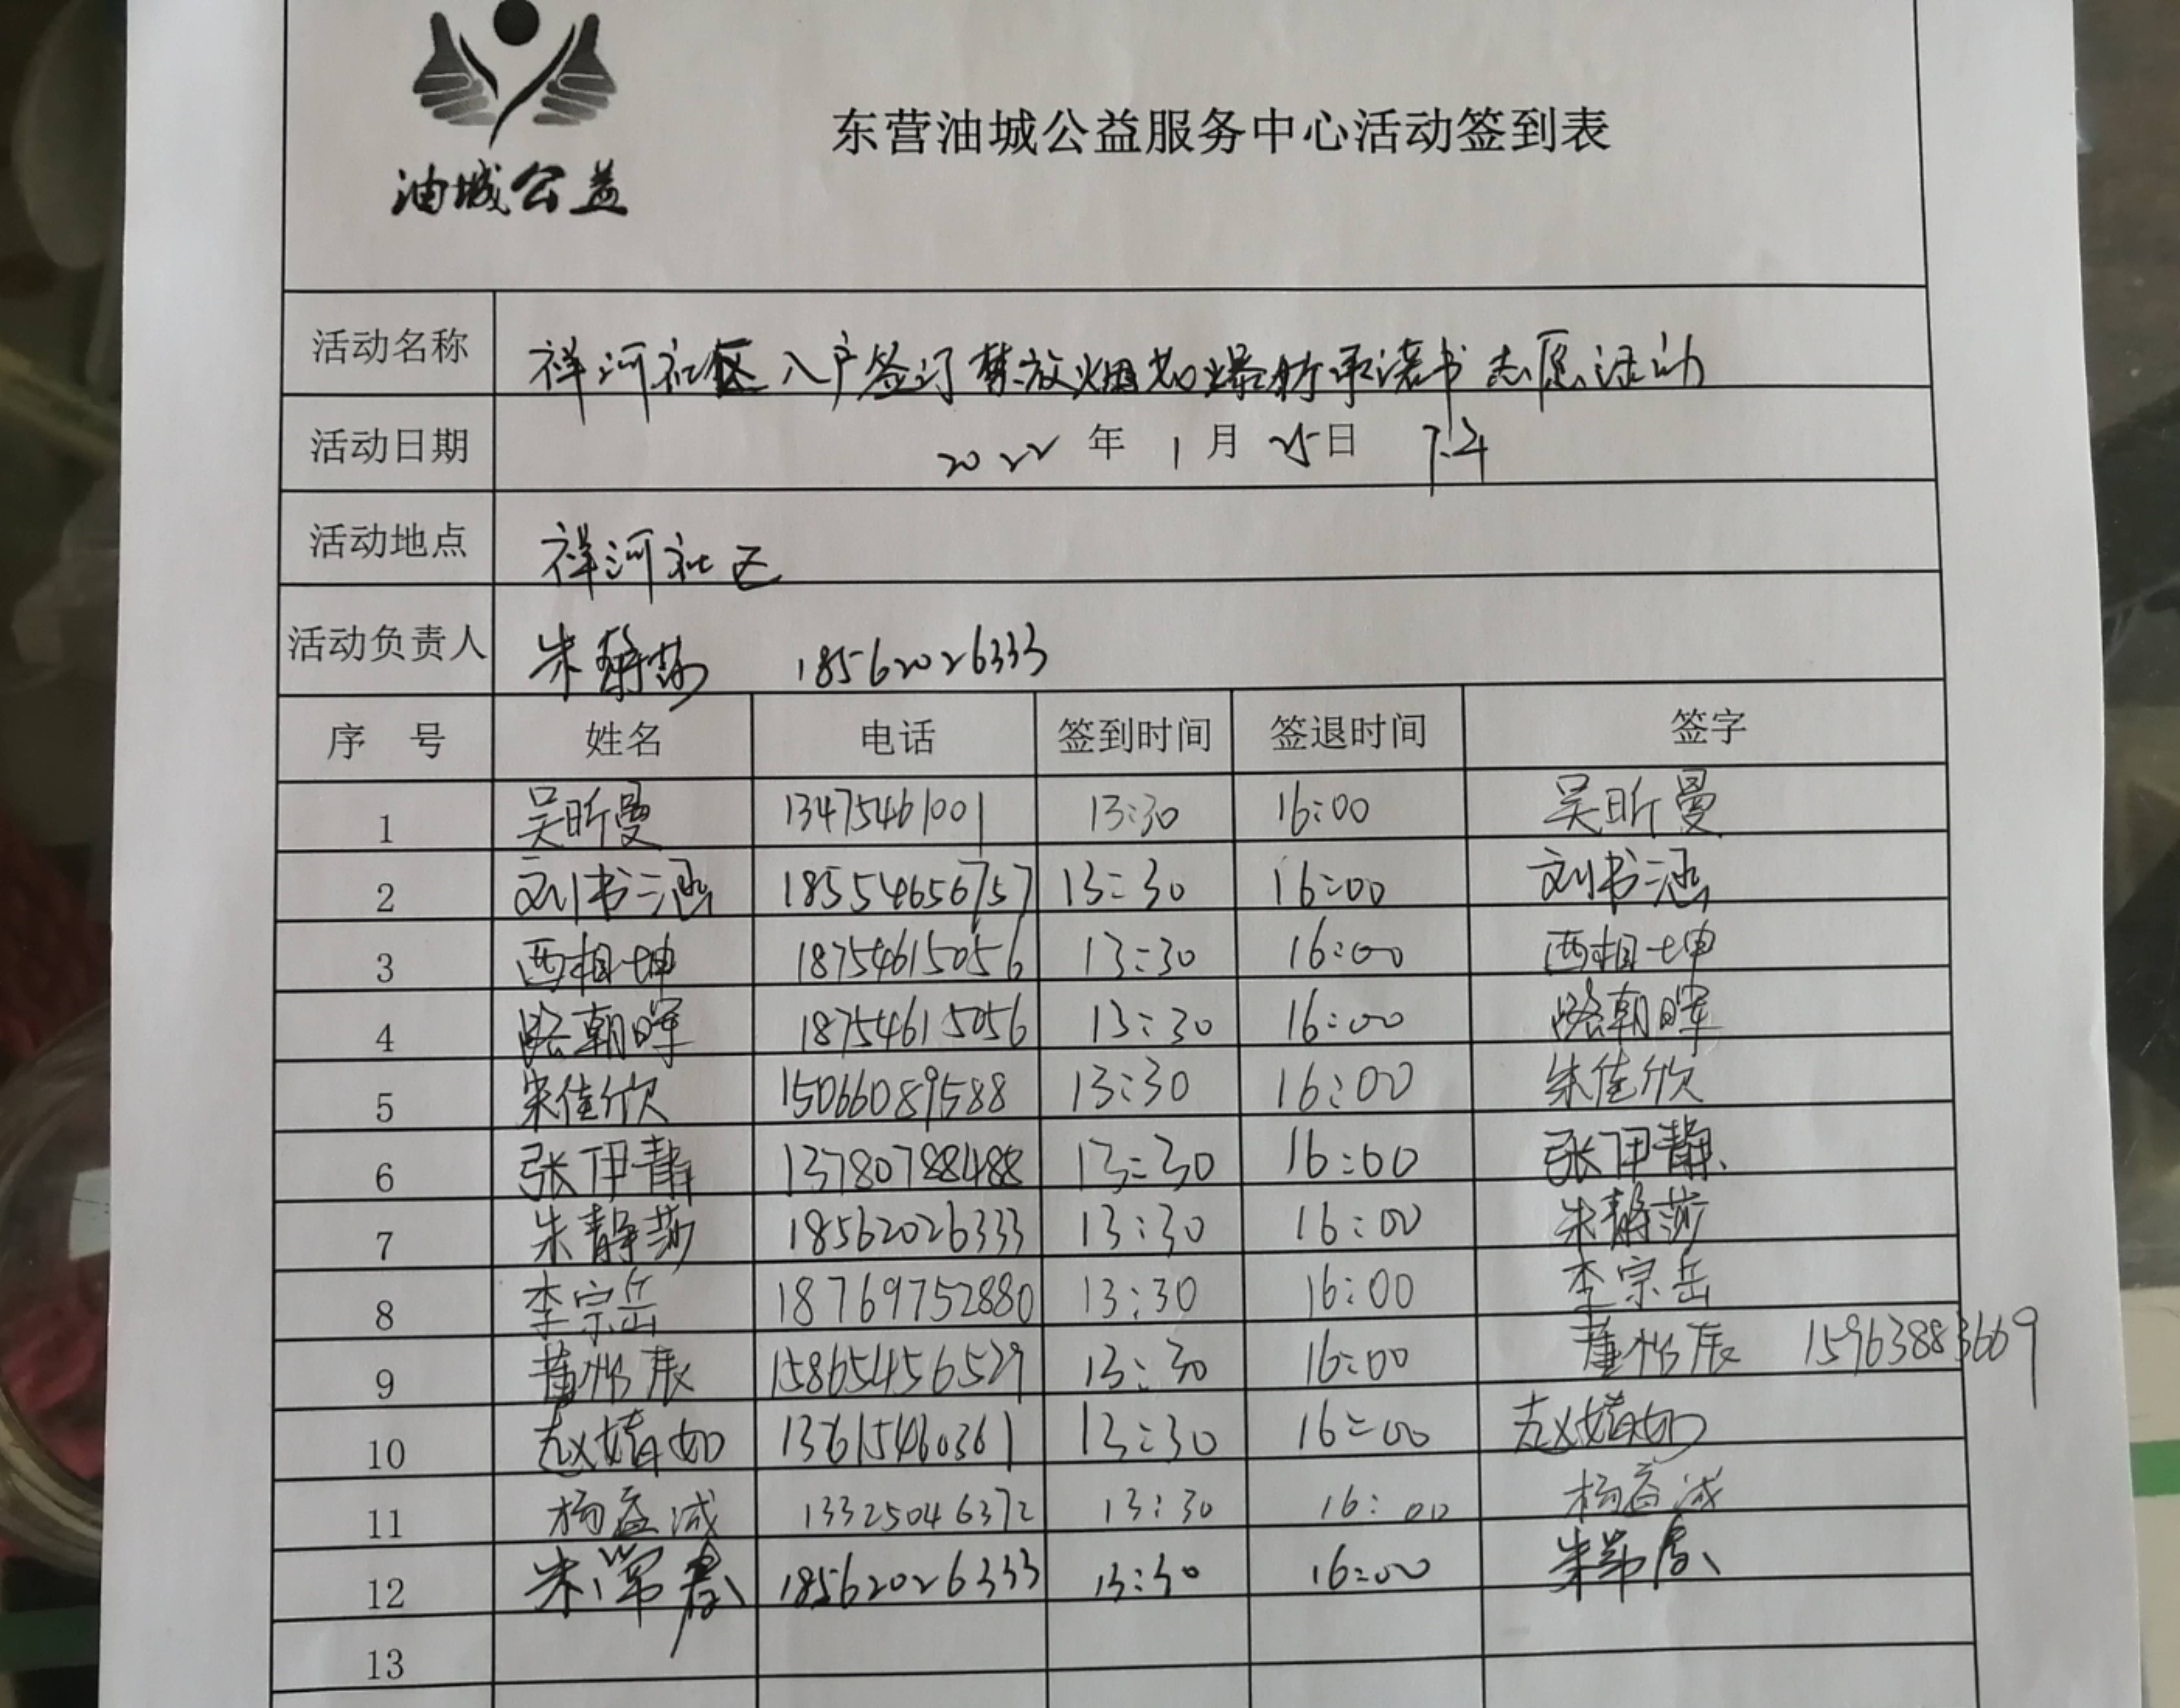 油城公益
东营油城公益服务中心活动签到表
活动名称 祥河社区入户签订禁放烟花爆竹承诺书志愿活动
活动日期 2022 年 1 月 25 日 下午
活动地点 祥河社区
活动负责人 朱静莎 18562026333
序 号 姓名 电话 签到时间 签退时间 签字
1 吴昕曼 13475461001 13:30 16:00 吴昕曼
2 刘书涵 18554656757 13:30 16:00 刘书涵
3 西相坤 18754615056 13:30 16:00 西相坤
4 路朝晖 18754615056 13:30 16:00 路朝晖
5 朱佳欣 15066089588 13:30 16:00 朱佳欣
6 张伊静 13780788488 13:30 16:00 张伊静
7 朱静莎 18562026333 13:30 16:00 朱静莎
8 李宗岳 18769752880 13:30 16:00 李宗岳
9 董怡辰 15865456529 13:30 16:00 董怡辰 15963883669
10 赵婧如 13615460361 13:30 16:00 赵婧如
11 杨益诚 13325046372 13:30 16:00 杨益诚
12 朱常春 18562026333 13:30 16:00 朱常春
13